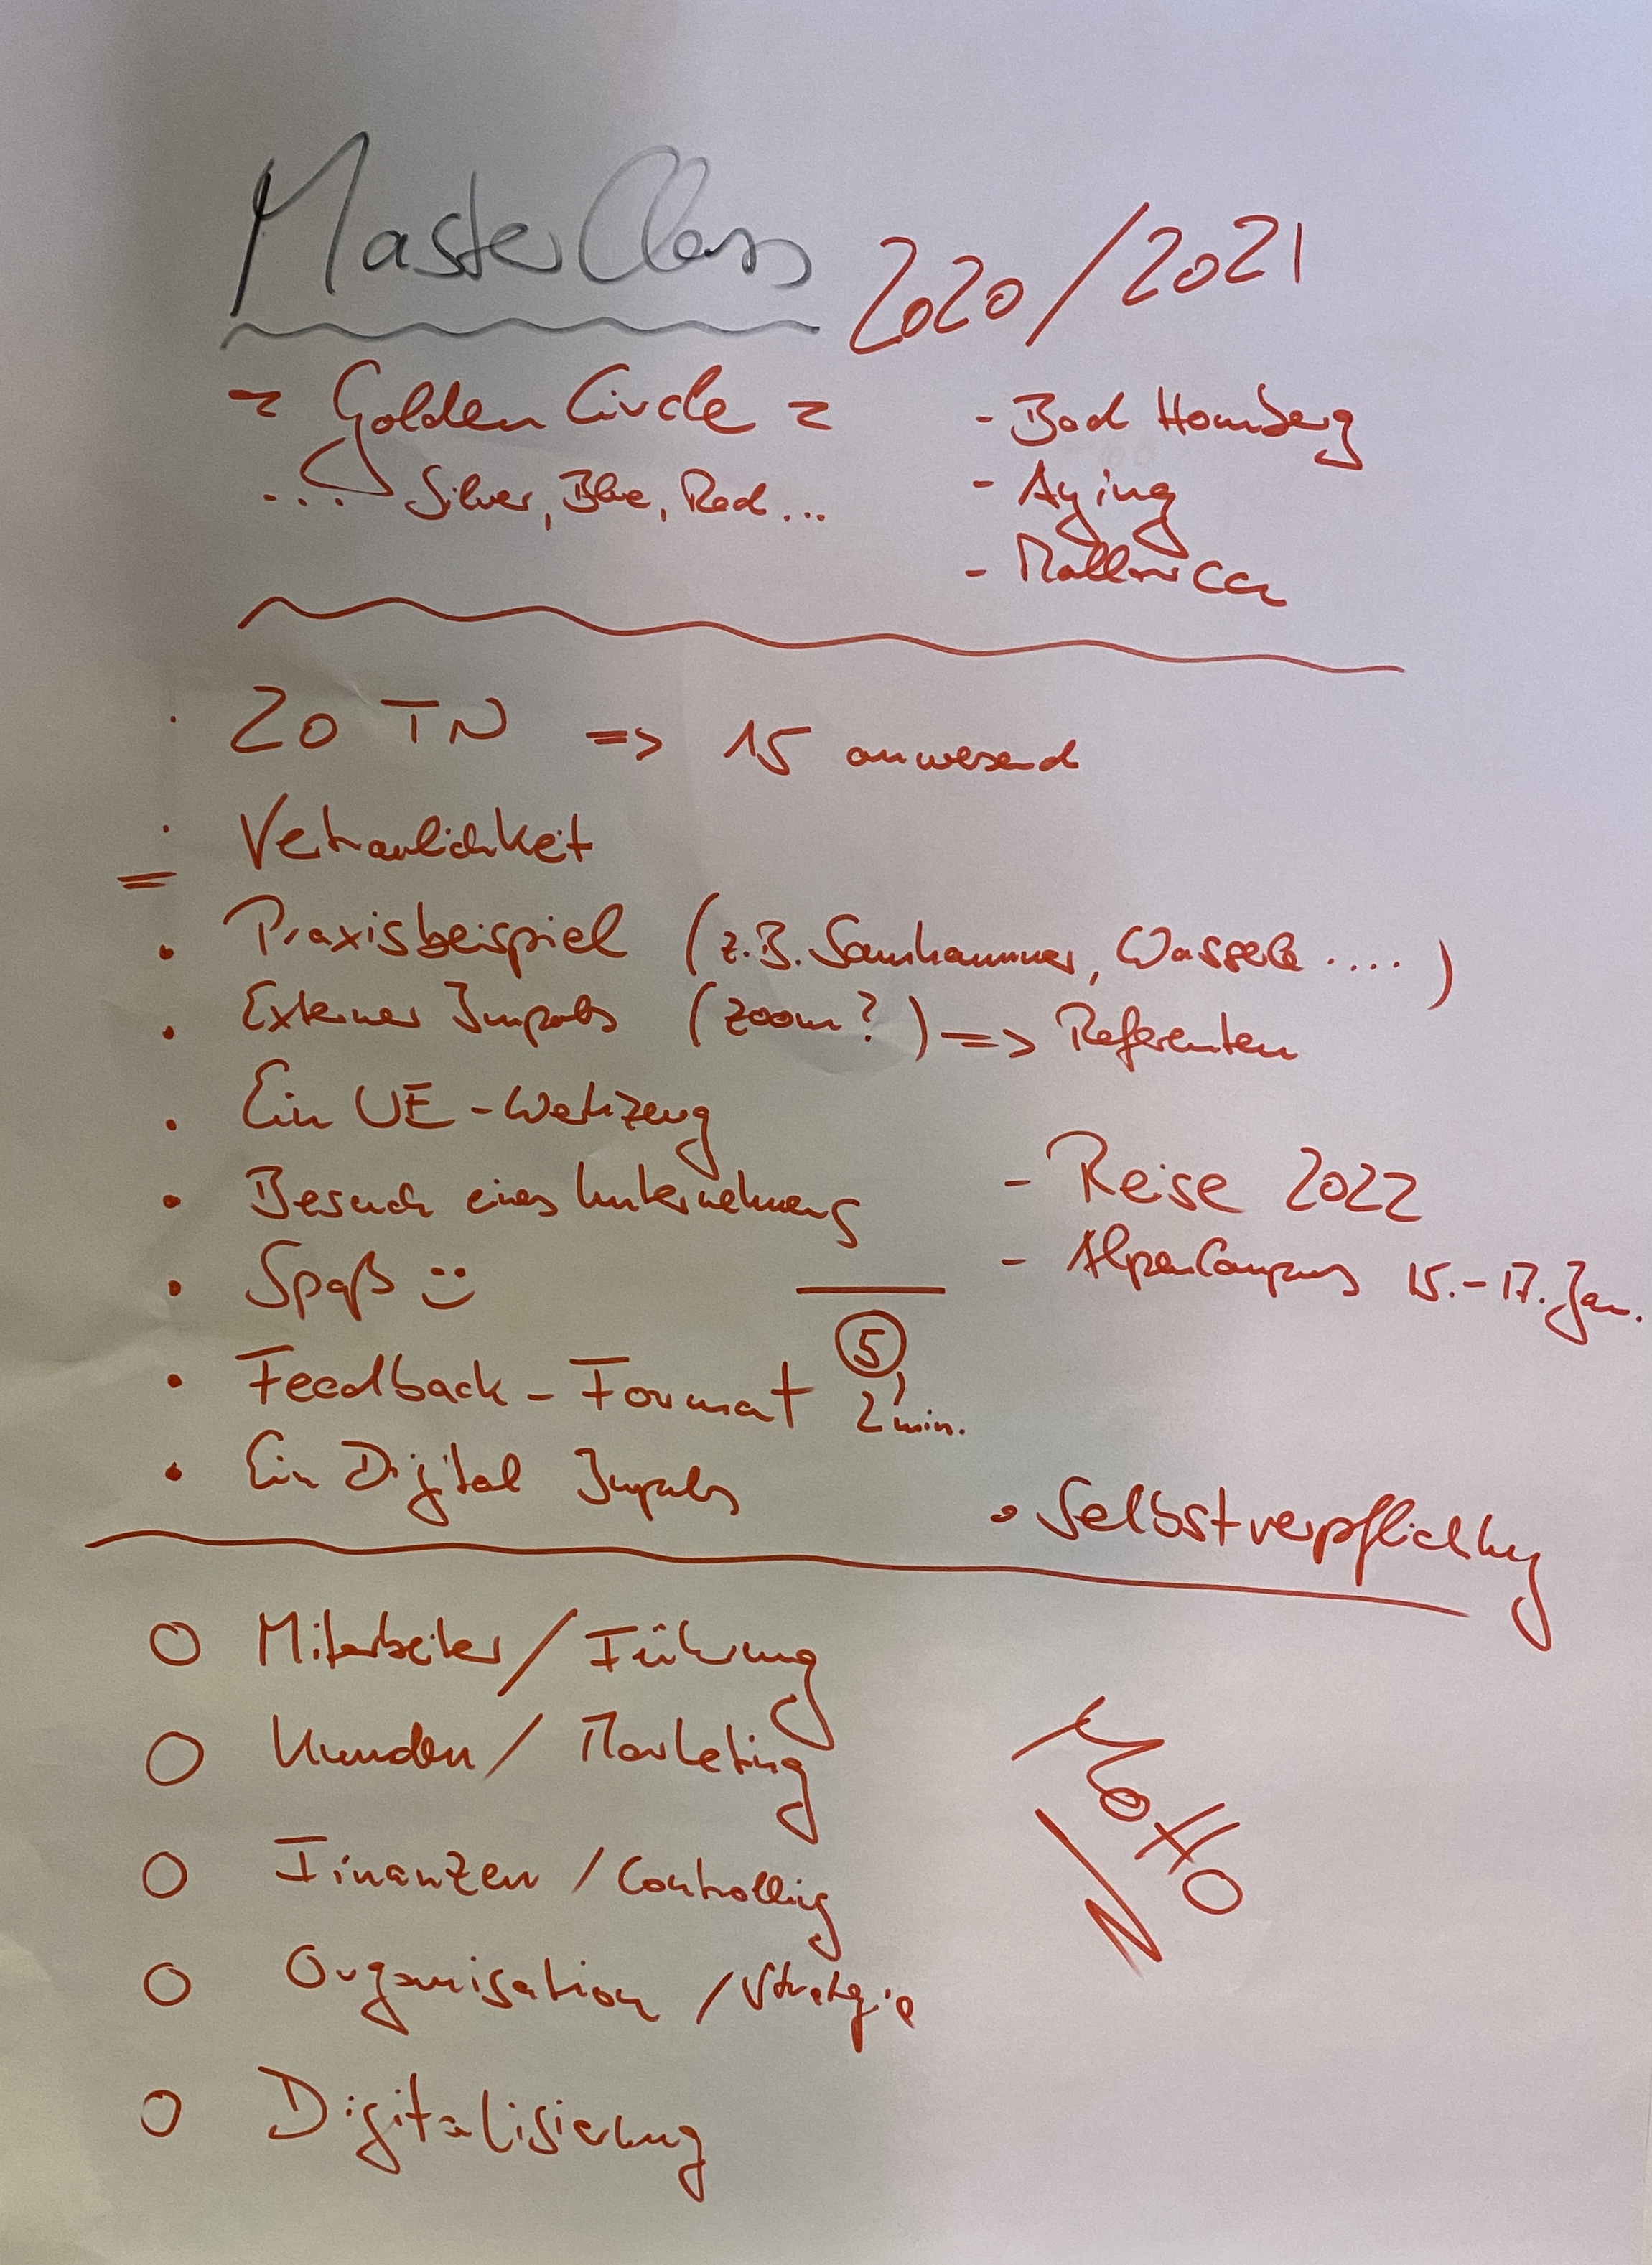 MasterClass 2020/2021
= Golden Circle =
... Silver, Blue, Red...
- Bad Homburg
- Aying
- Mallorca
· 20 TN => 15 anwesend
· Vertraulichkeit
• Praxisbeispiel (z.B. Samhammer, ....)
• Externer Impuls (Zoom?) => Referenten
• Ein UE-Werkzeug
• Besuch eines Unternehmens
• Spaß :)
• Feedback-Format 5, 2 min.
• Ein Digital Impuls
- Reise 2022
- AlpenCampus 15.-17. Jan.
• Selbstverpflichtung
O Mitarbeiter/Führung
O Kunden/Marketing
O Finanzen/Controlling
O Organisation/Strategie
O Digitalisierung
Motto